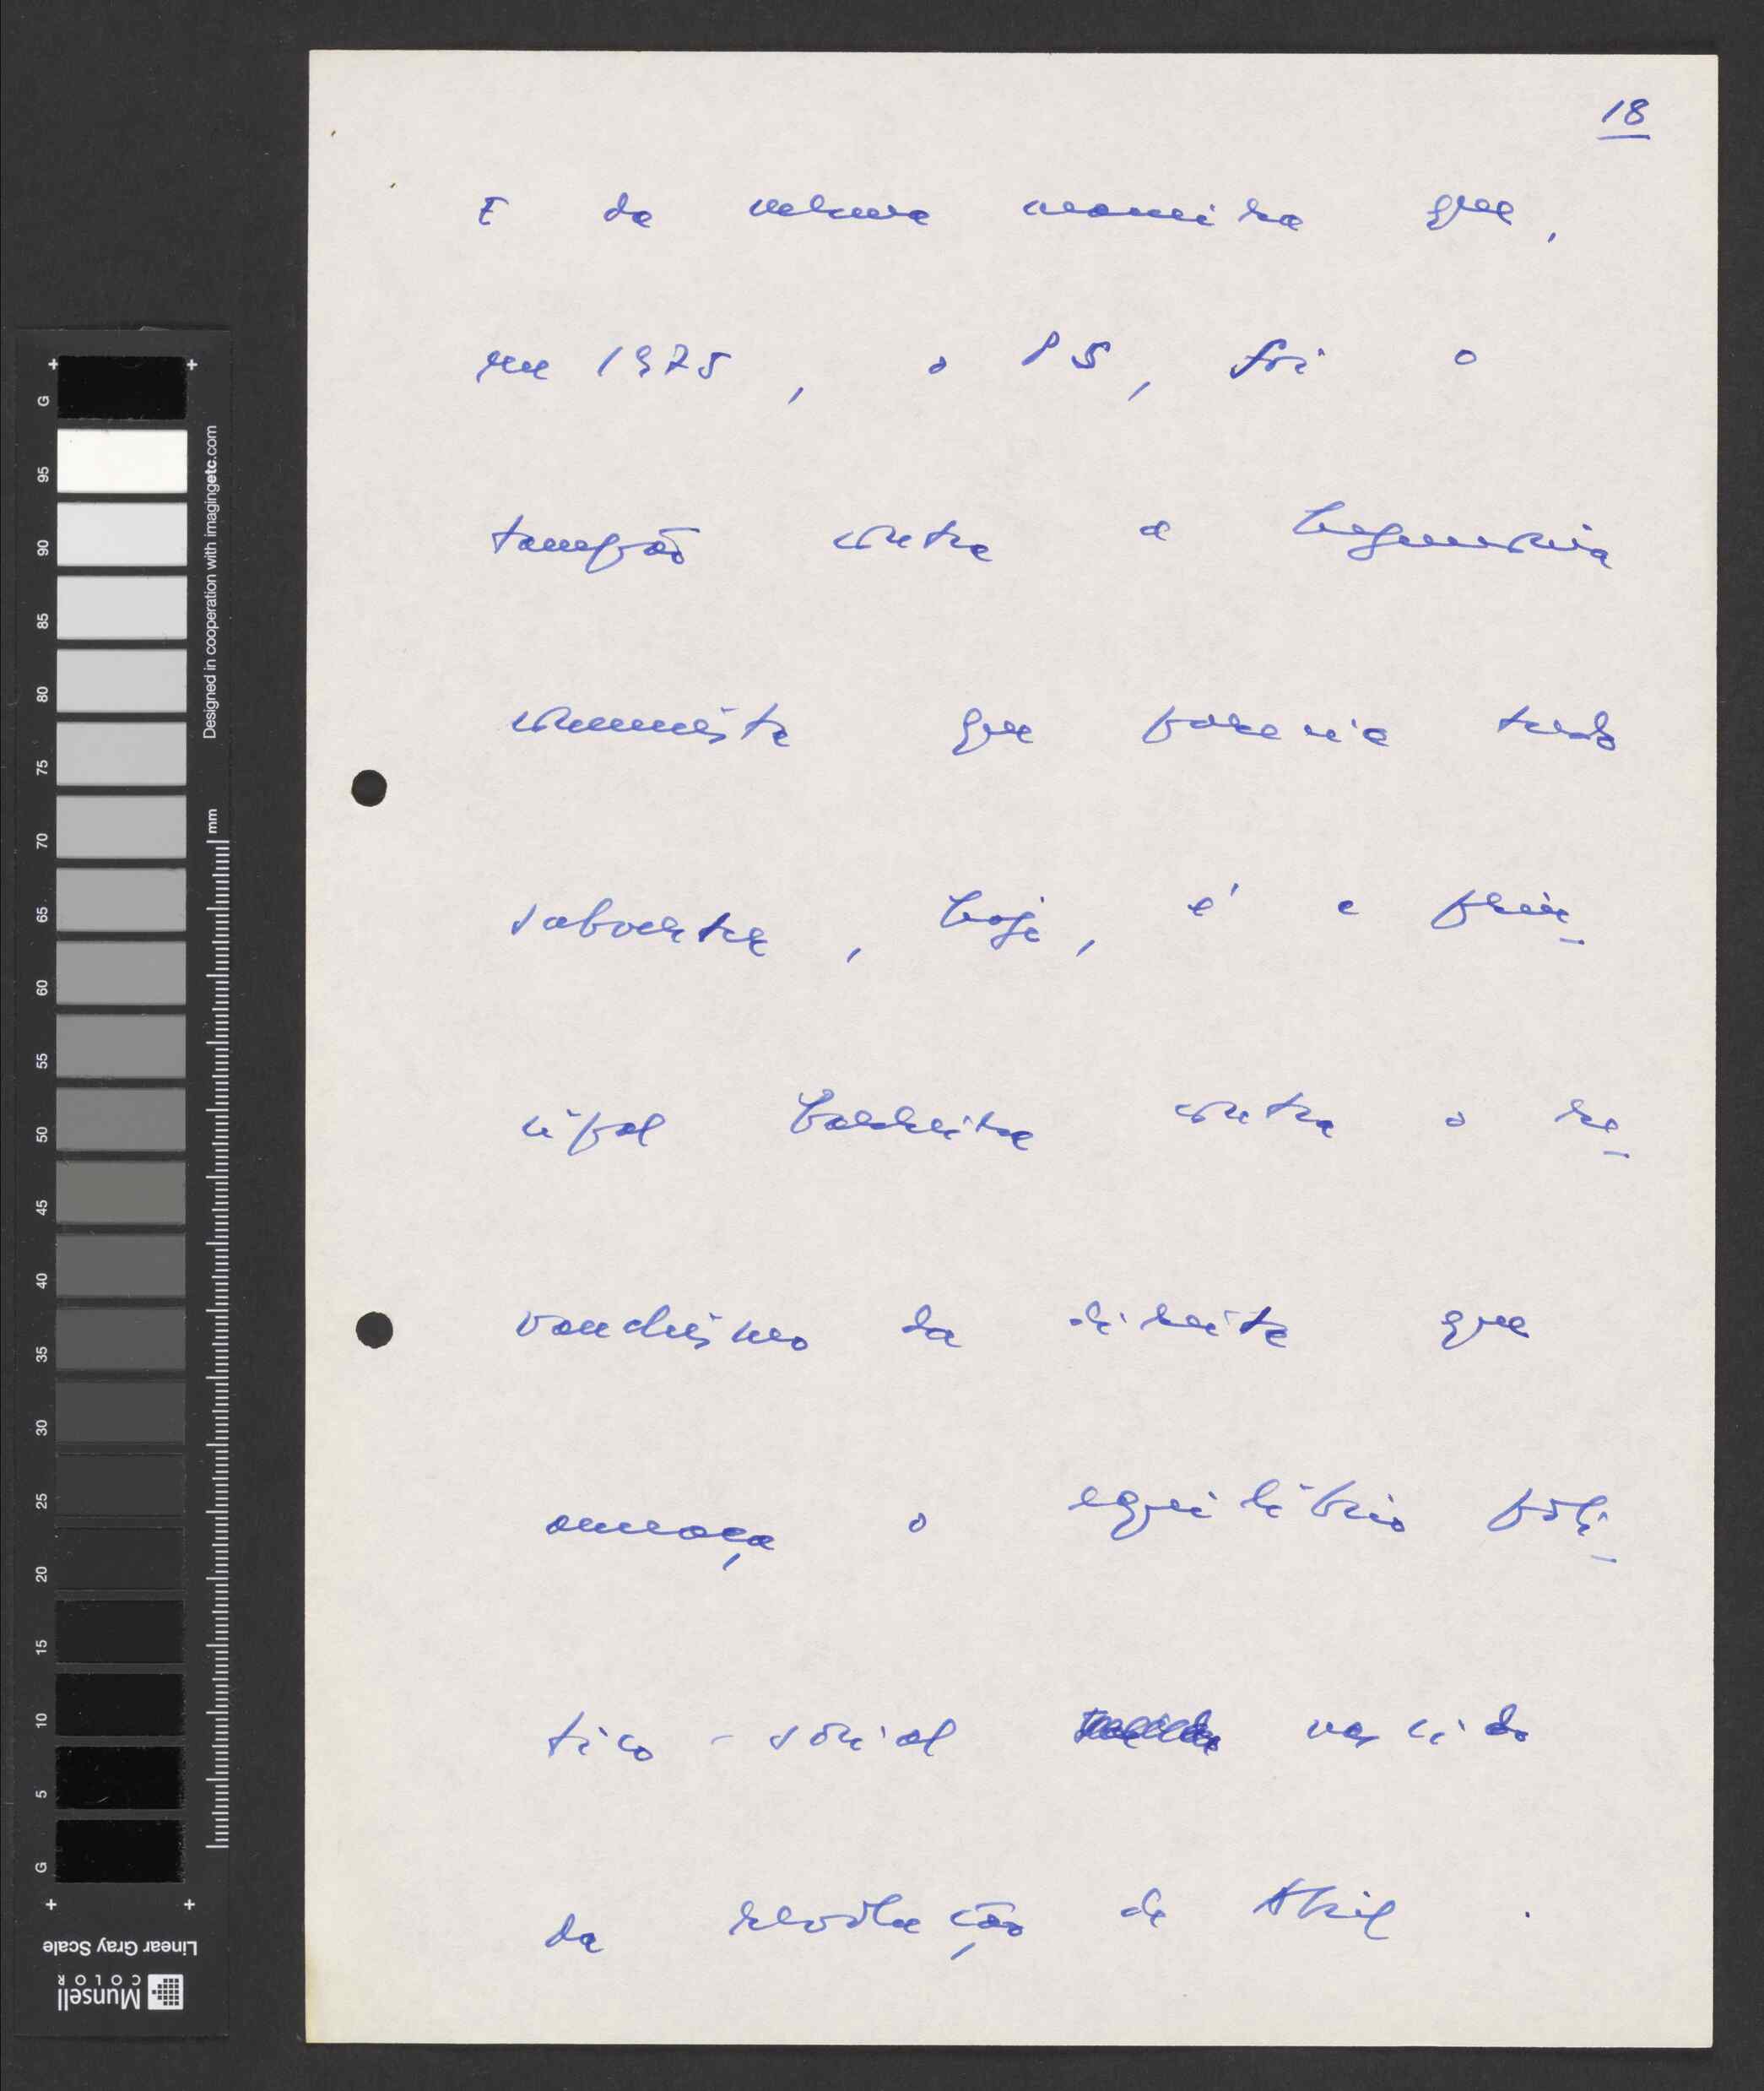 18
E da mesma maneira que,
em 1975, o PS, foi o
tampão contra a hegemonia
comunista que parecia tudo
submeter, hoje, é a prin-
cipal barreira contra o re-
vanchismo da direita que
ameaça o equilíbrio polí-
tico-social nascido
da revolução de Abril.
G
95
90
85
80
75
70
65
60
55
50
45
40
35
30
25
20
15
10
5
G
mm
Designed in cooperation with imagingetc.com
Linear Gray Scale
Munsell
COLOR